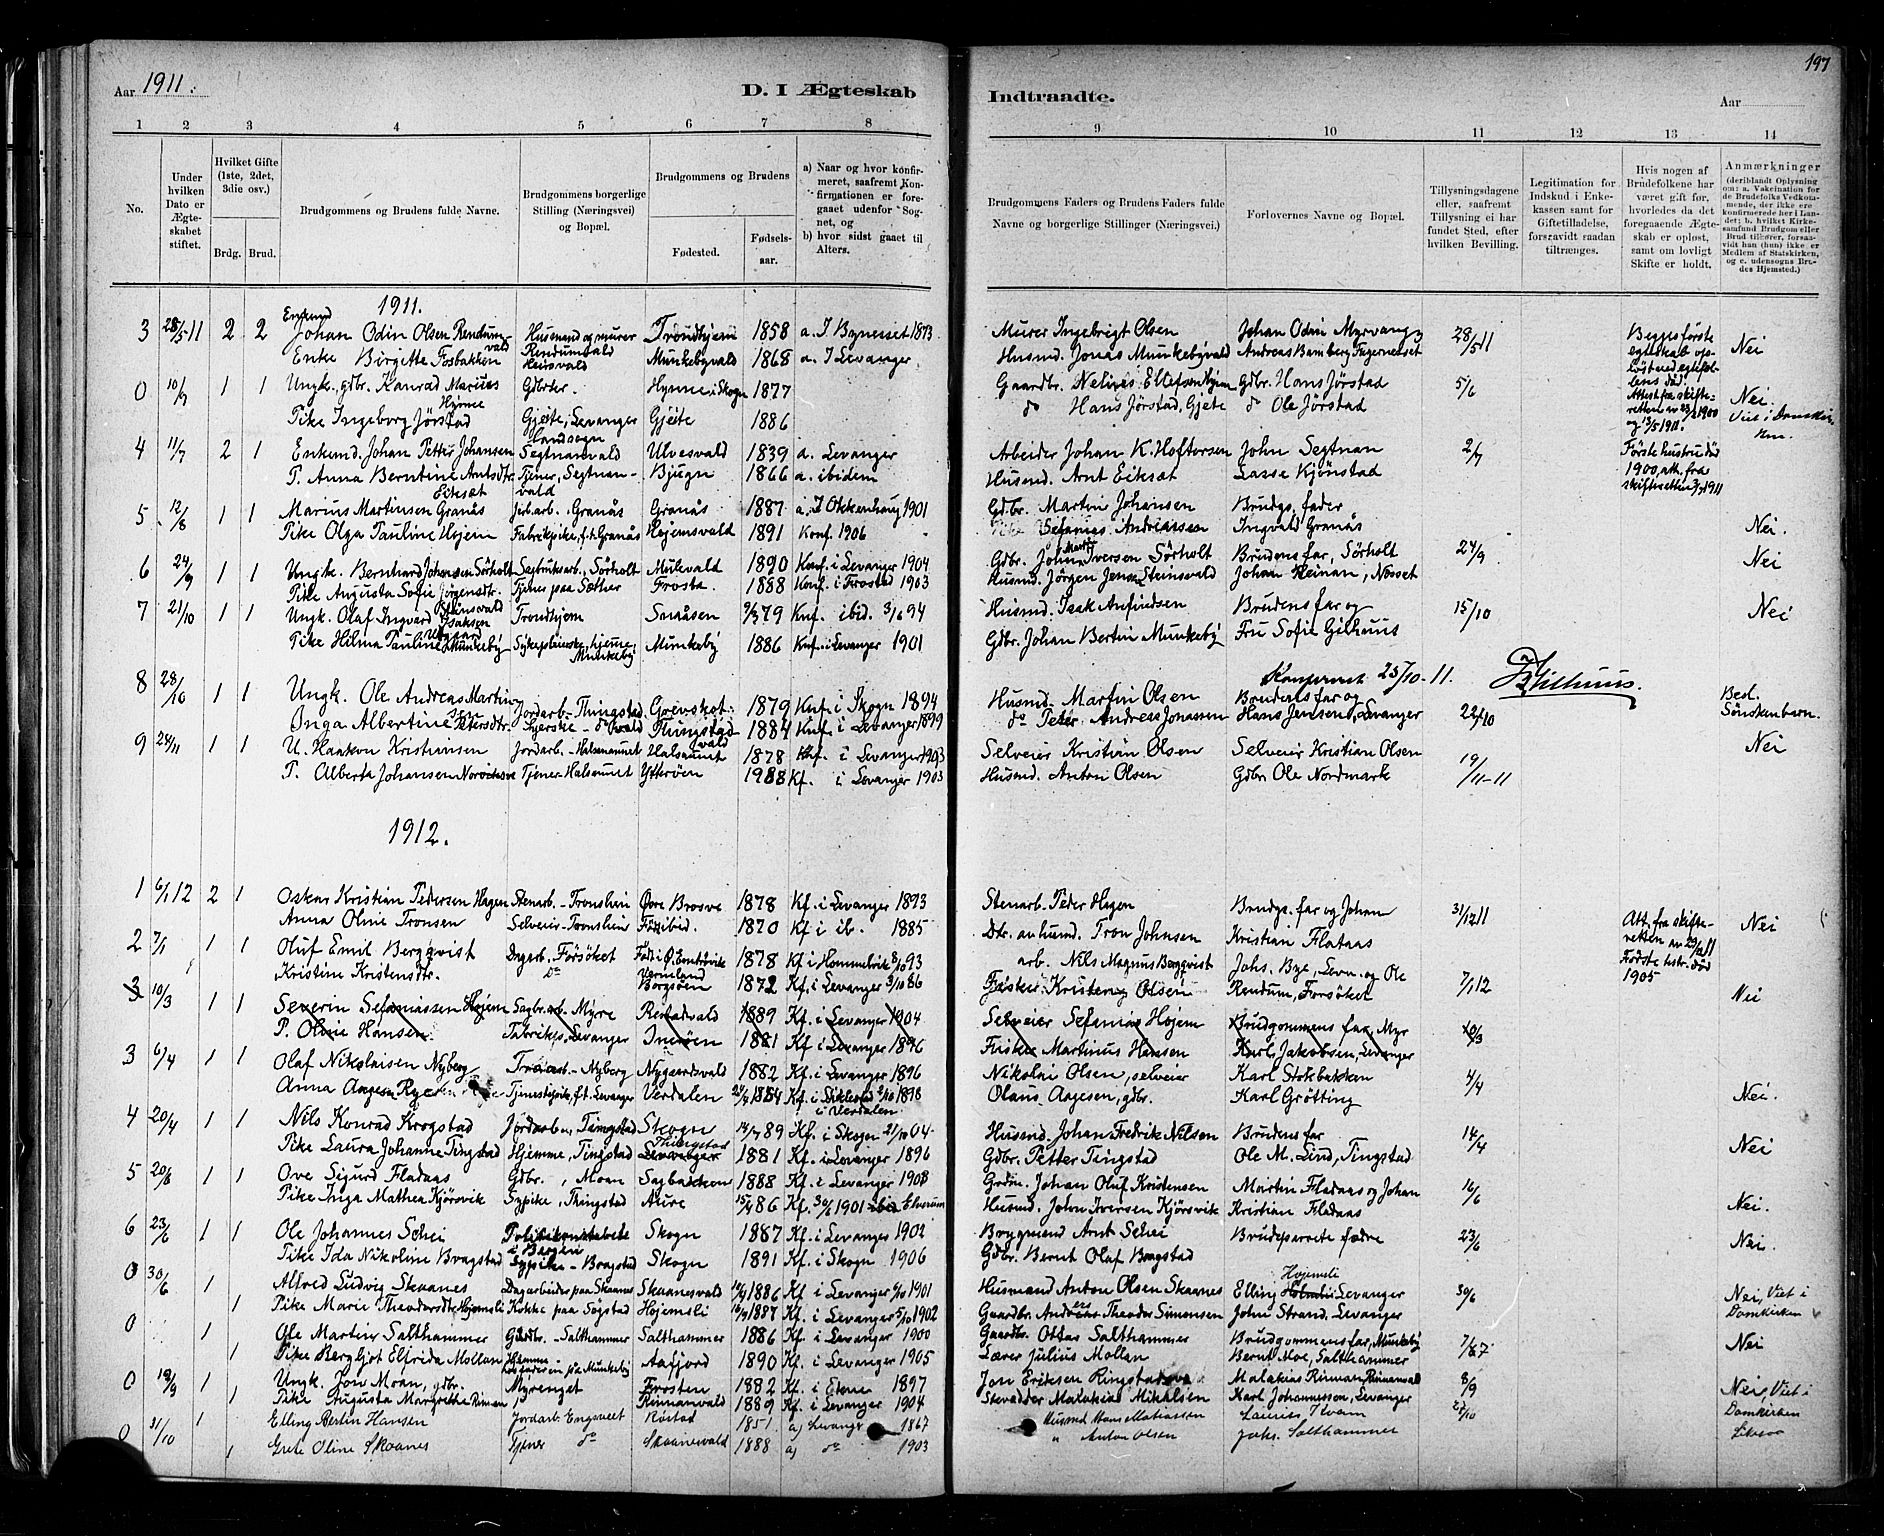 Aar 1911.
D. I Ægteskab
1 2 3 4 5 6 7 8
No.
Under hvilken Dato er Ægteskabet stiftet.
Hvilket Gifte (1ste, 2det, 3die osv.)
Brdg. Brud.
Brudgommens og Brudens fulde Navne.
Brudgommens borgerlige Stilling (Næringsvei) og Bopæl.
Brudgommens og Brudens
Fødested. Fødselsaar.
a) Naar og hvor konfirmeret, saafremt Konfirmationen er foregaaet udenfor Sognet, og
b) hvor sidst gaaet til Alters.
1911.
3 28/5 11 2 2 Enkemd Johan Odin Olsen Rendumvald Husmand og murer Rendumvald Trondhjem 1858 a. I Bynesset 1873
Enke Birgitte Fosbakken Heirsvald Munkebyvald 1868 a. I Levanger
0 10/7 1 1 Ungk. gdbr. Konrad Marius Hynne Gdbrker. Hynne i Skogn 1877
Pike Ingeborg Jörstad Gjeite, Levanger Landsogn Gjeite 1886
4 11/7 2 1 Enkemd. Johan Petter Johansen Segtnanvald Ulvesvald 1839 a. Levanger
P. Anna Berntine Arntsdtr. Eiksæt Tjener, Segtnanvald Bjugn 1866 a. ibidem
5 12/8 1 1 Marius Martinsen Granås jrb.arb. Granås Granås 1887 a. I Okkenhaug 1901
Pike Olga Pauline Hojem Fabrikpike, f.t. Granås Hojemsvald 1891 Konf. 1906
6 24/9 1 1 Ungk. Bernhard Johansen Sörholt Sagbruksarb., Sörholt Mulevald 1890 Konf. i Levanger 1904
Pike Augusta Sofie Jörgensdtr. Steinsvald Tjener paa Sæther Frosta 1888 Konf. i Frostad 1903
7 21/10 1 1 Ungk. Olaf Ingvard Isaksen Trondhjem Snaåsen 2/3 79 Knf. ibid. 3/6 94
Pike Hilma Pauline Munkeby Munkeby Munkeby 1886 Knf. i Levanger 1901
8 28/10 1 1 Ungk. Ole Andreas Martinsen Jordarb. Thingstad 1879 Knf. i Skogn 1894
Inga Albertine Petersdtr. Thingstadvald 1884 Knf. i Levanger 1899
9 24/11 1 1 U. Haakon Kristiansen Jordarb. Halsaunet Halsaunet 1878 Knf. i Levanger 1903
P. Alberta Johansen Tjener Halsaunet Ytterøen 1988 Kf. i Levanger 1903
1912.
1 6/1 12 2 1 Oskar Kristian Pedersen Hagen Stenarb. 1878 Kf. i Levanger 1893
Anna Oline Tronsen Selveier 1870 Kf i ib. 1885
2 7/1 1 1 Oluf Emil Bergqvist Dagarb. Försöket 1878 Kf i Hommelvik 8/10 93
Kristine Kristensdtr. do Borgsöen 1872 Kf. i Levanger 3/10 86
3 10/3 1 1 Severin Sefaniassen Hojem Sagbr.arb. Myrre 1889 Kf. i Levanger 1904
P. Oline Hansen Fabrikp. Levanger Inderöen 1881 Kf i Levanger 1896
3 6/4 1 1 Olaf Nikolaisen Nyberg Nyberg Nygaardsvald 1882 Kf. i Levanger 1896
Anna Aagesen Tjenestepike, f.t. Levanger Verdalen Kf. i Stiklestad i Verdalen. 1898
4 20/4 1 1 Nils Konrad Krogstad Jordarb., Tingstad Skogn 14/7 89 Kf. i Skogn 21/10 04.
Pike Laura Johanne Tingstad Hjemme, Tingstad Thingstad Levanger 1881 Kf. i Levanger 1896
5 20/6 1 1 Ove Sigurd Fladaas Gdbr., Moan Sagbakken 1888 Kf. i Levanger 1903
Pike Inga Mathea Kjörsvik Sypike, Thingstad Aure 15/4 86 Kf. 30/6 1901 ibid Elverum
6 23/6 1 1 Ole Johannes Schei Politikonstabel i Bergen Skogn 1887 Kf. i Levanger 1902
Pike Ida Nikoline Bragstad Sypike – Bragstad Skogn 1891 Kf. i Skogn 1906
0 30/6 1 Alfred Ludvig Skaanes Dagarbeider paa Skaanes Skaanesvald 14/9 1886 Kf. i Levanger 6/10 1901
1 Pike Marie Theodorsdtr. Hojemsli Kokke paa Sogstad Hojemsli 16/9 1887 Kf. i Levanger 5/10 1902
0 1 Ole Martin Salthammer Gårdbr. Salthammer Salthammer 1886 Kf. i Levanger 1900
1 Pike Bergljot Elfrida Mollan Aafjord 1890 Kf. i Levanger 1905
0 19/9 1 Ungk. Jon Moan, gdbr. Myrenget Frosten 1882 Kf. i Ekne 1897
1 Pike Augusta Margrethe Rinnan Rinnanvald 1889 Kf. i Levanger 1904
0 31/10 1 Elling Merlin Hansen Jordarb. Rustad 1851 a) Levanger 1867
1 Grete Oline Skaanes Tjener do Skaanesvald 1888 a) do 1903
197
Indtraadte.
Aar
9 10 11 12 13 14
Brudgommens Faders og Brudens Faders fulde Navne og borgerlige Stillinger (Næringsvei.)
Forlovernes Navne og Bopæl.
Tillysningsdagene eller, saafremt Tillysning ei har fundet Sted, efter hvilken Bevilling.
Legitimation for Indskud i Enkekassen samt for Giftetilladelse, forsaavidt saadan tiltrænges.
Hvis nogen af Brudefolkene har været gift før, hvorledes da det foregaaende Ægteskab er opløst, samt om lovligt Skifte er holdt.
Anmærkninger (deriblandt Oplysning om: a. Vakcination for de Brudefolks Vedkommende, der ikke ere konfirmerede her i Landet; b. hvilket Kirkesamfund Brudgom eller Brud tilhører, forsaavidt han (hun) ikke er Medlem af Statskirken, og c. udensogns Brudes Hjemsted.)
Murer Ingebrigt Olsen Johan Odin Myrvang 28/5 11 Begges første egteskab opløst ved egtefellens död. Attest fra skifteretten av 23/2 1900 og 13/5 1911. Nei
Husmd. Jonas Munkebyvald Andreas Bamberg Fagerneset
Gaardbr. Nelius Ellefsen Hynne Gdbr. Hans Jörstad 5/6 Nei. Viet i Domkirken.
do Hans Jörstad, Gjete do Ole Jörstad
Arbeider Johan K. Hoftorsen John Segtnan 2/7 Første hustru död 1900, att. fra skifteretten 3/7 1911
Husmd. Arnt Eiksæt Lasse Kjönstad
Gdbr. Martin Johansen Brudgs. fader
Sefanias Andreassen Ingvald Granås Nei.
Gdbr. Johan Martin Iversen Sörholt Brudens far, Sörholt 24/9 Nei
Husmd. Jörgen Jensen Steinsvald Johan Reinan, Nosset
Husmd. Isak Anfindsen Brudens far og 15/10 Nei
Gdbr. Johan Bertin Munkeby Fru Sofie Gilhuus
Konferert 23/10-11. Gilhuus.
Husmd. Martin Olsen Brudens far og 22/10 Besl. Sönskenbarn.
do Peter Andreas Johansen Hans Jensen, Levanger
Selveier Kristian Olsen Selveier Kristian Olsen 19/11-11 Nei
Husmd. Anton Olsen Gdbr Ole Nordmark
Stenarb. Peder Hagen Brudgs. far og Johan 31/12 11 Att. fra skifteretten av 29/12 11 Første hstr. död 1905 Nei
Dtr. av husmd. Tron Johnsen Kristian Flataas
arb. Nils Magnus Bergqvist Johs. Bye, Levn. og Ole 7/1 12 Nei
Fisker Kristen Olsen Rendum, Forsöket
Selveier Sefanias Hojem Brudgommens far, Myr 10/3
Fisker Martinus Hansen Karl Jakobsen, Levanger
Nikolai Olsen, selveier Karl Stokbakken 4/4 Nei.
Olaus Aagesen, gdbr. Karl Grötting
Husmd. Johan Fredrik Nilsen Brudens far 14/4 Nei
Gdbr. Petter Tingstad Ole M. Lind, Tingstad
Johan Oluf Kristensen Martin Fladaas og Johan 16/6 Nei.
Husmd. John Iversen Kjörsvik Kristian Fladaas
Bergmand Arnt Schei Brudeparrets fædre 23/6 Nei.
Gdbr. Bernt Olaf Bragstad
Husmand Anton Olsen Skaanes Elling Hojemsli Levanger 30/6 Nei, Viet i Domkirken
Gaardbr. Andreas Theodor Simonsen John Strand, Levanger
Gaardbr. Ottar Salthammer Brudgommens far, Munkeby Nei
Lærer Julius Mollan Bernt Moe, Salthammer
Jon Eriksen Ringstad Malakias Rinnan, Rinnanvald 8/9 Nei, Viet i Domkirken
Malakias Mikalsen Karl Johannesson, Levanger
Husmd Hans Matiassen Laurits Hvam 27/10
" Anton Olsen Johs. Salthammer